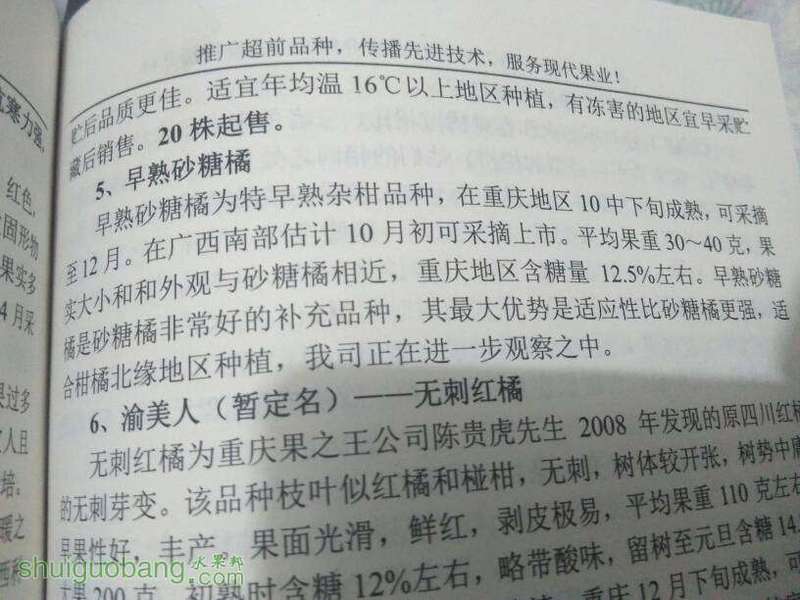 推广超前品种，传播先进技术，服务现代果业！
贮后品质更佳。适宜年均温 16℃以上地区种植，有冻害的地区宜早采贮
藏后销售。20 株起售。
5、早熟砂糖橘
早熟砂糖橘为特早熟杂柑品种，在重庆地区 10 中下旬成熟，可采摘
至12月。在广西南部估计 10 月初可采摘上市。平均果重 30～40 克，果
实大小和和外观与砂糖橘相近，重庆地区含糖量 12.5%左右。早熟砂糖
橘是砂糖橘非常好的补充品种，其最大优势是适应性比砂糖橘更强，适
合柑橘北缘地区种植，我司正在进一步观察之中。
6、渝美人（暂定名）——无刺红橘
无刺红橘为重庆果之王公司陈贵虎先生 2008 年发现的原四川红橘
的无刺芽变。该品种枝叶似红橘和椪柑，无刺，树体较开张，树势中庸
早果性好，丰产。果面光滑，鲜红，剥皮极易，平均果重 110 克左右
大果 200 克，初熟时含糖 12%左右，略带酸味，留树至元旦含糖 14.
重庆 12 月下旬成熟，可
力强，
红色，
固形物
果实多
4 月采
果过多
人且
培。
暖之
西种
shuiguobang.com
水果邦